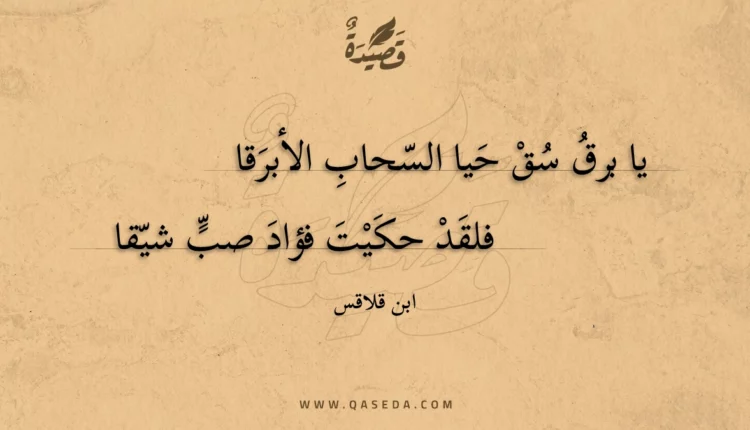 قَصِيْدَةٌ
يا برقُ سُقْ حَيا السّحابِ الأبرَقا
فلقَدْ حكَيْتَ فؤادَ صبٍّ شيّقا
ابن قلاقس
WWW.QASEDA.COM